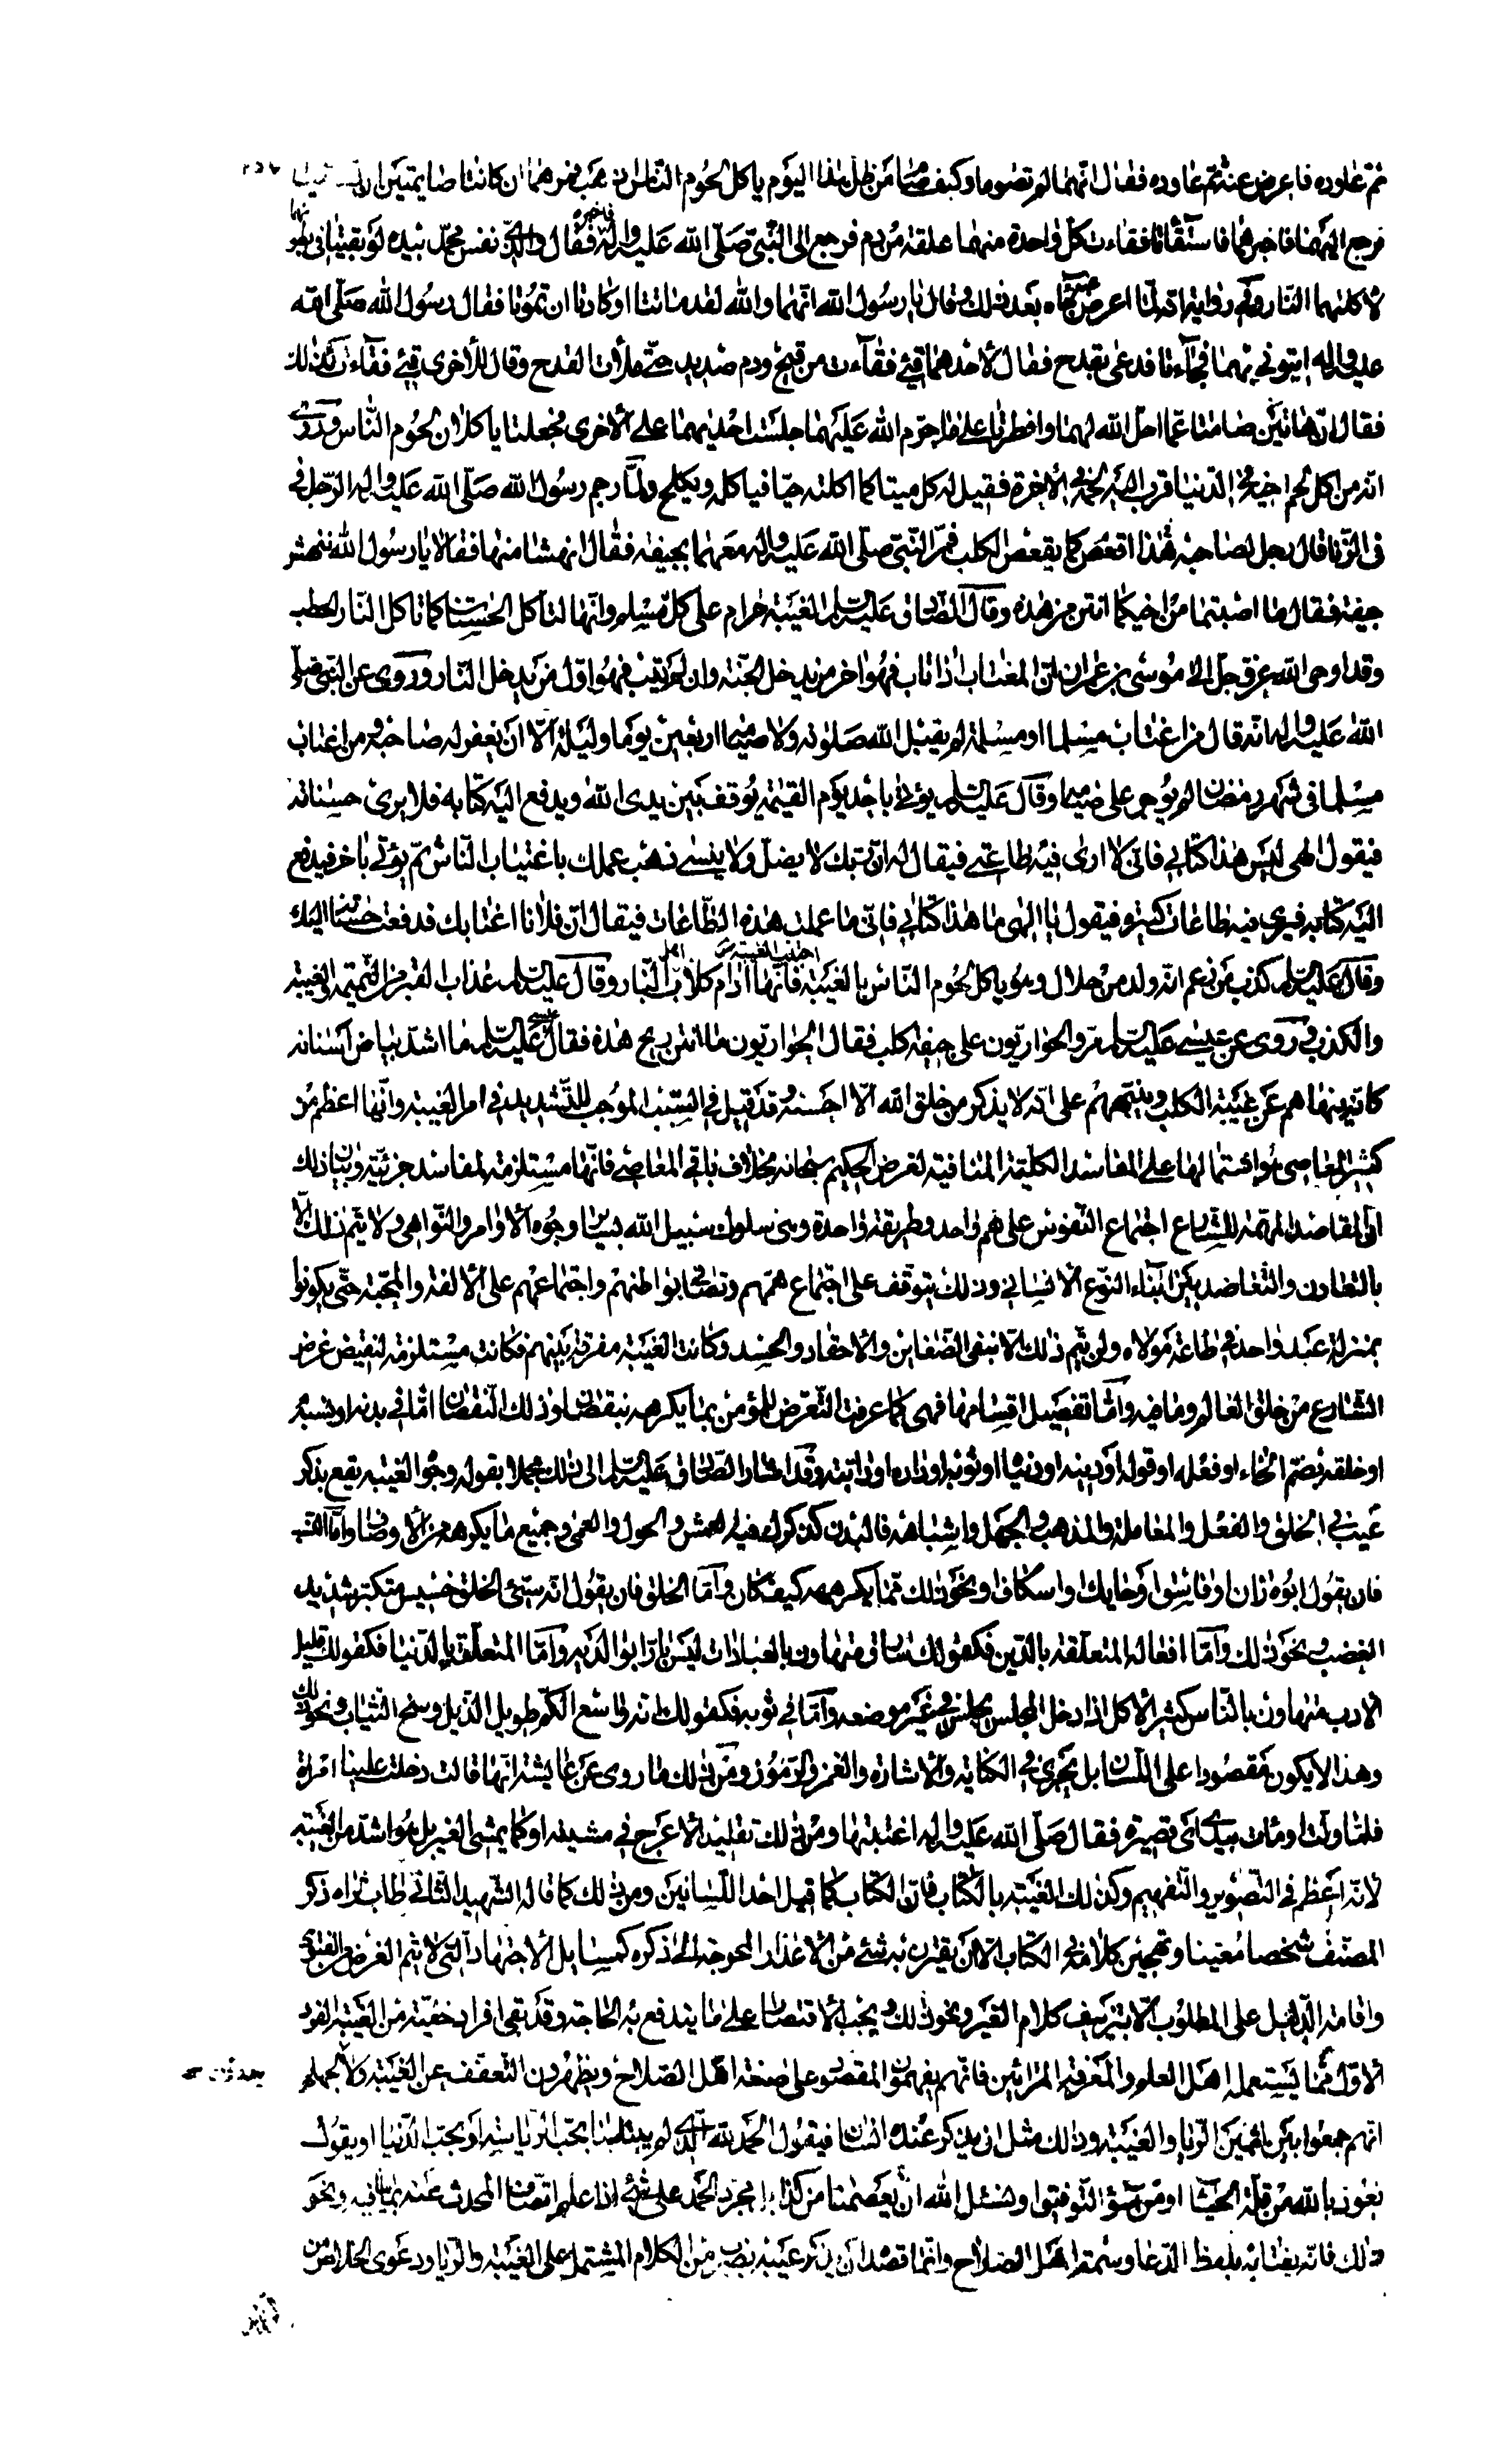 ثم عاوده فاعرض عنه ثم عاوده فقال انهما لم تصوما وكيف صام من ظل هذا اليوم ياكل لحوم الناس اذهب فمرهما ان كانتا صايمتين ان
فرجع اليهما فاخبرهما فاستقائتا فقاءت كل واحدة منهما علقة من دم فرجع الى النبي صلى الله عليه واله فاخبره فقال والذي نفس محمد بيده لو بقيتا في بطونهما
لاكلتهما النار وفي رواية انه لما اعرض عنه جاءه بعد ذلك وقال يا رسول الله انهما والله لقد ماتتا او كادتا ان تموتا فقال رسول الله صلى الله
عليه واله ايتوني بهما فجاءتا فدعى بقدح فقال لاحدهما قيئي فقاءت من قيح ودم صديد حتى ملأت القدح وقال للاخرى قيئي فقاءت كذلك
فقال ان هاتين صامتا عما احل الله لهما وافطرتا على ما حرم الله عليهما جلست احديهما على الاخرى فجعلتا ياكلان لحوم الناس وروي
انه من اكل لحم اخيه في الدنيا قرب اليه لحمه في الاخرة فقيل له كل ميتا كما اكلته حيا فياكله ويكلح ولما رجم رسول الله صلى الله عليه واله الرجل في
في الزنا قال رجل لصاحبه هذا اقعص كما يقعص الكلب فمر النبي صلى الله عليه واله معهما بجيفة فقال انهشا منها فقالا يا رسول الله ننهش
جيفة فقال ما اصبتما من اخيكما انتن من هذه وقال الصادق عليه السلم الغيبة حرام على كل مسلم وانها لتاكل الحسنات كما تاكل النار الحطب
وقد اوحى الله عز وجل الى موسى بن عمران ان المغتاب اذا تاب فهو اخر من يدخل الجنة وان لم يتب فهو اول من يدخل النار وروى عن النبي صلى
الله عليه واله انه قال من اغتاب مسلما او مسلمة لم يقبل الله صلوته ولا صيامه اربعين يوما وليلة الا ان يغفر له صاحبه ومن اغتاب
مسلما في شهر رمضان لم يوجر على صيامه وقال عليه السلم يؤتى باحد يوم القيمة يوقف بين يدى الله ويدفع اليه كتابه فلا يرى حسناته
فيقول الهى ليس هذا كتابي فاني لا ارى فيه طاعتي فيقال له ان ربك لا يضل ولا ينسى ذهب عملك باغتياب الناس ثم يؤتى باخر فيدفع
اليه كتابه فيرى فيه طاعات كثيرة فيقول يا الهى ما هذا كتابي فاني ما عملت هذه الطاعات فيقال ان فلانا اغتابك فدفعت حسناته اليك
وقال عليه السلم كذب من زعم انه ولد من حلال وهو ياكل لحوم الناس بالغيبة اجتنب الغيبة فانها ادام كلاب اهل النار وقال عليه السلم عذاب القبر من النميمة والغيبة
والكذب وروى عن عيسى عليه السلم مر والحواريون على جيفة كلب فقال الحواريون ما انتن ريح هذه فقال عيسى عليه السلم ما اشد بياض اسنانه
كانه ينهاهم عن غيبة الكلب وينبههم على انه لا يذكر من خلق الله الا احسنه وقد قيل في السبب الموجب للتشديد في امر الغيبة وانها اعظم من
كثير المعاصى هو اشتمالها على المفاسد الكلية المنافية لغرض الحكيم سبحانه بخلاف باقي المعاصى فانها مستلزمة لمفاسد جزئية وبيان ذلك
ان المقاصد المهمة للشارع اجتماع النفوس على هم واحد وطريقة واحدة وهى سلوك سبيل الله بساير وجوه الاوامر والنواهى ولا يتم ذلك الا
بالتعاون والتعاضد بين ابناء النوع الانساني وذلك يتوقف على اجتماع هممهم وتصافي بواطنهم واجتماعهم على الالفة والمحبة حتى يكونوا
بمنزلة عبد واحد في طاعة مولاه ولن يتم ذلك الا بنفى الضغاين والاحقاد والحسد وكانت الغيبة مفرقة بينهم فكانت مستلزمة لنقيض غرض
الشارع من خلق العالم وما فيه واما تفصيل اقسامها فهى كما عرفت التعرض للمؤمن بما يكرهه بنقصان وذلك النقصان اما في بدنه او نسبه
او خلقه بضم الخاء او فعله او قوله او دينه او دنياه او ثوبه او داره او دابته وقد اشار الصادق عليه السلم الى ذلك مجملا بقوله وجوه الغيبة يقع بذكر
عيب في الخلق والفعل والمعاملة والمذهب والجهل واشباهه فالبدن كذكرك فيه العمش والحول والعمى وجميع ما يكرهه من الاوصاف واما النسب
فان يقول ابوه زان او فاسق او حايك او اسكاف او نحو ذلك مما يكرهه كيف كان واما الخلق فان يقول انه سيئ الخلق خسيس متكبر شديد
الغضب ونحو ذلك واما افعاله المتعلقة بالدين فكقولك سارق متهاون بالعبادات ليس بارا بوالديه واما المتعلق بالدنيا فكقولك قليل
الادب متهاون بالناس كثير الاكل اذا دخل المجلس يجلس في غير موضعه واما في ثوبه فكقولك انه واسع الكم طويل الذيل وسخ الثياب ونحو ذلك
وهذا لا يكون مقصودا على اللسان بل يجرى في الكناية والاشارة والغمز والرموز ومن ذلك ما روى عن عايشة انها قالت دخلت علينا امراة
فلما ولت اومأت بيدى اى قصيرة فقال صلى الله عليه واله اغتبتها ومن ذلك تقليد الاعرج في مشيته او كما يمشى الغير بل هو اشد من الغيبة
لانه اعظم في التصوير والتفهيم وكذلك الغيبة بالكتاب فان الكتاب كما قيل احد اللسانين ومن ذلك كما قاله الشهيد الثاني طاب ثراه ذكر
المصنف شخصا معينا وتهجين كلامه في الكتاب الا ان يقترن به شئ من الاعذار المحوجة الى ذكره كمسايل الاجتهاد التى لا يتم الغرض من الفتوى
واقامة الدليل على المطلوب الا بتزييف كلام الغير ونحو ذلك ويجب الاقتصار على ما يندفع به الحاجة وقد بقى افراد خفية من الغيبة الفرد
الاول مما يستعمله اهل العلم والمعرفة المرائين فانهم يفهمون المقصود على صنعة اهل الصلاح ويظهرون التعفف عن الغيبة ولا لجهلهم
انهم جمعوا بين اثمين الريا والغيبة وذلك مثل ان يذكر عنده انسان فيقول الحمد لله الذي لم يبتلينا بحب الرياسة او بحب الدنيا او يقول
نعوذ بالله من قلة الحيا او من سوء التوفيق او نسئل الله ان يعصمنا من كذا بل مجرد الحمد على شئ اذا علم اتصاف المحدث عنه بما ينافيه ونحو
ذلك فانه يغتابه بلفظ الدعا وسمة اهل الصلاح وانما قصد ان يذكر عيبه بضرب من الكلام المشتمل على الغيبة والريا ودعوى الخلاص من